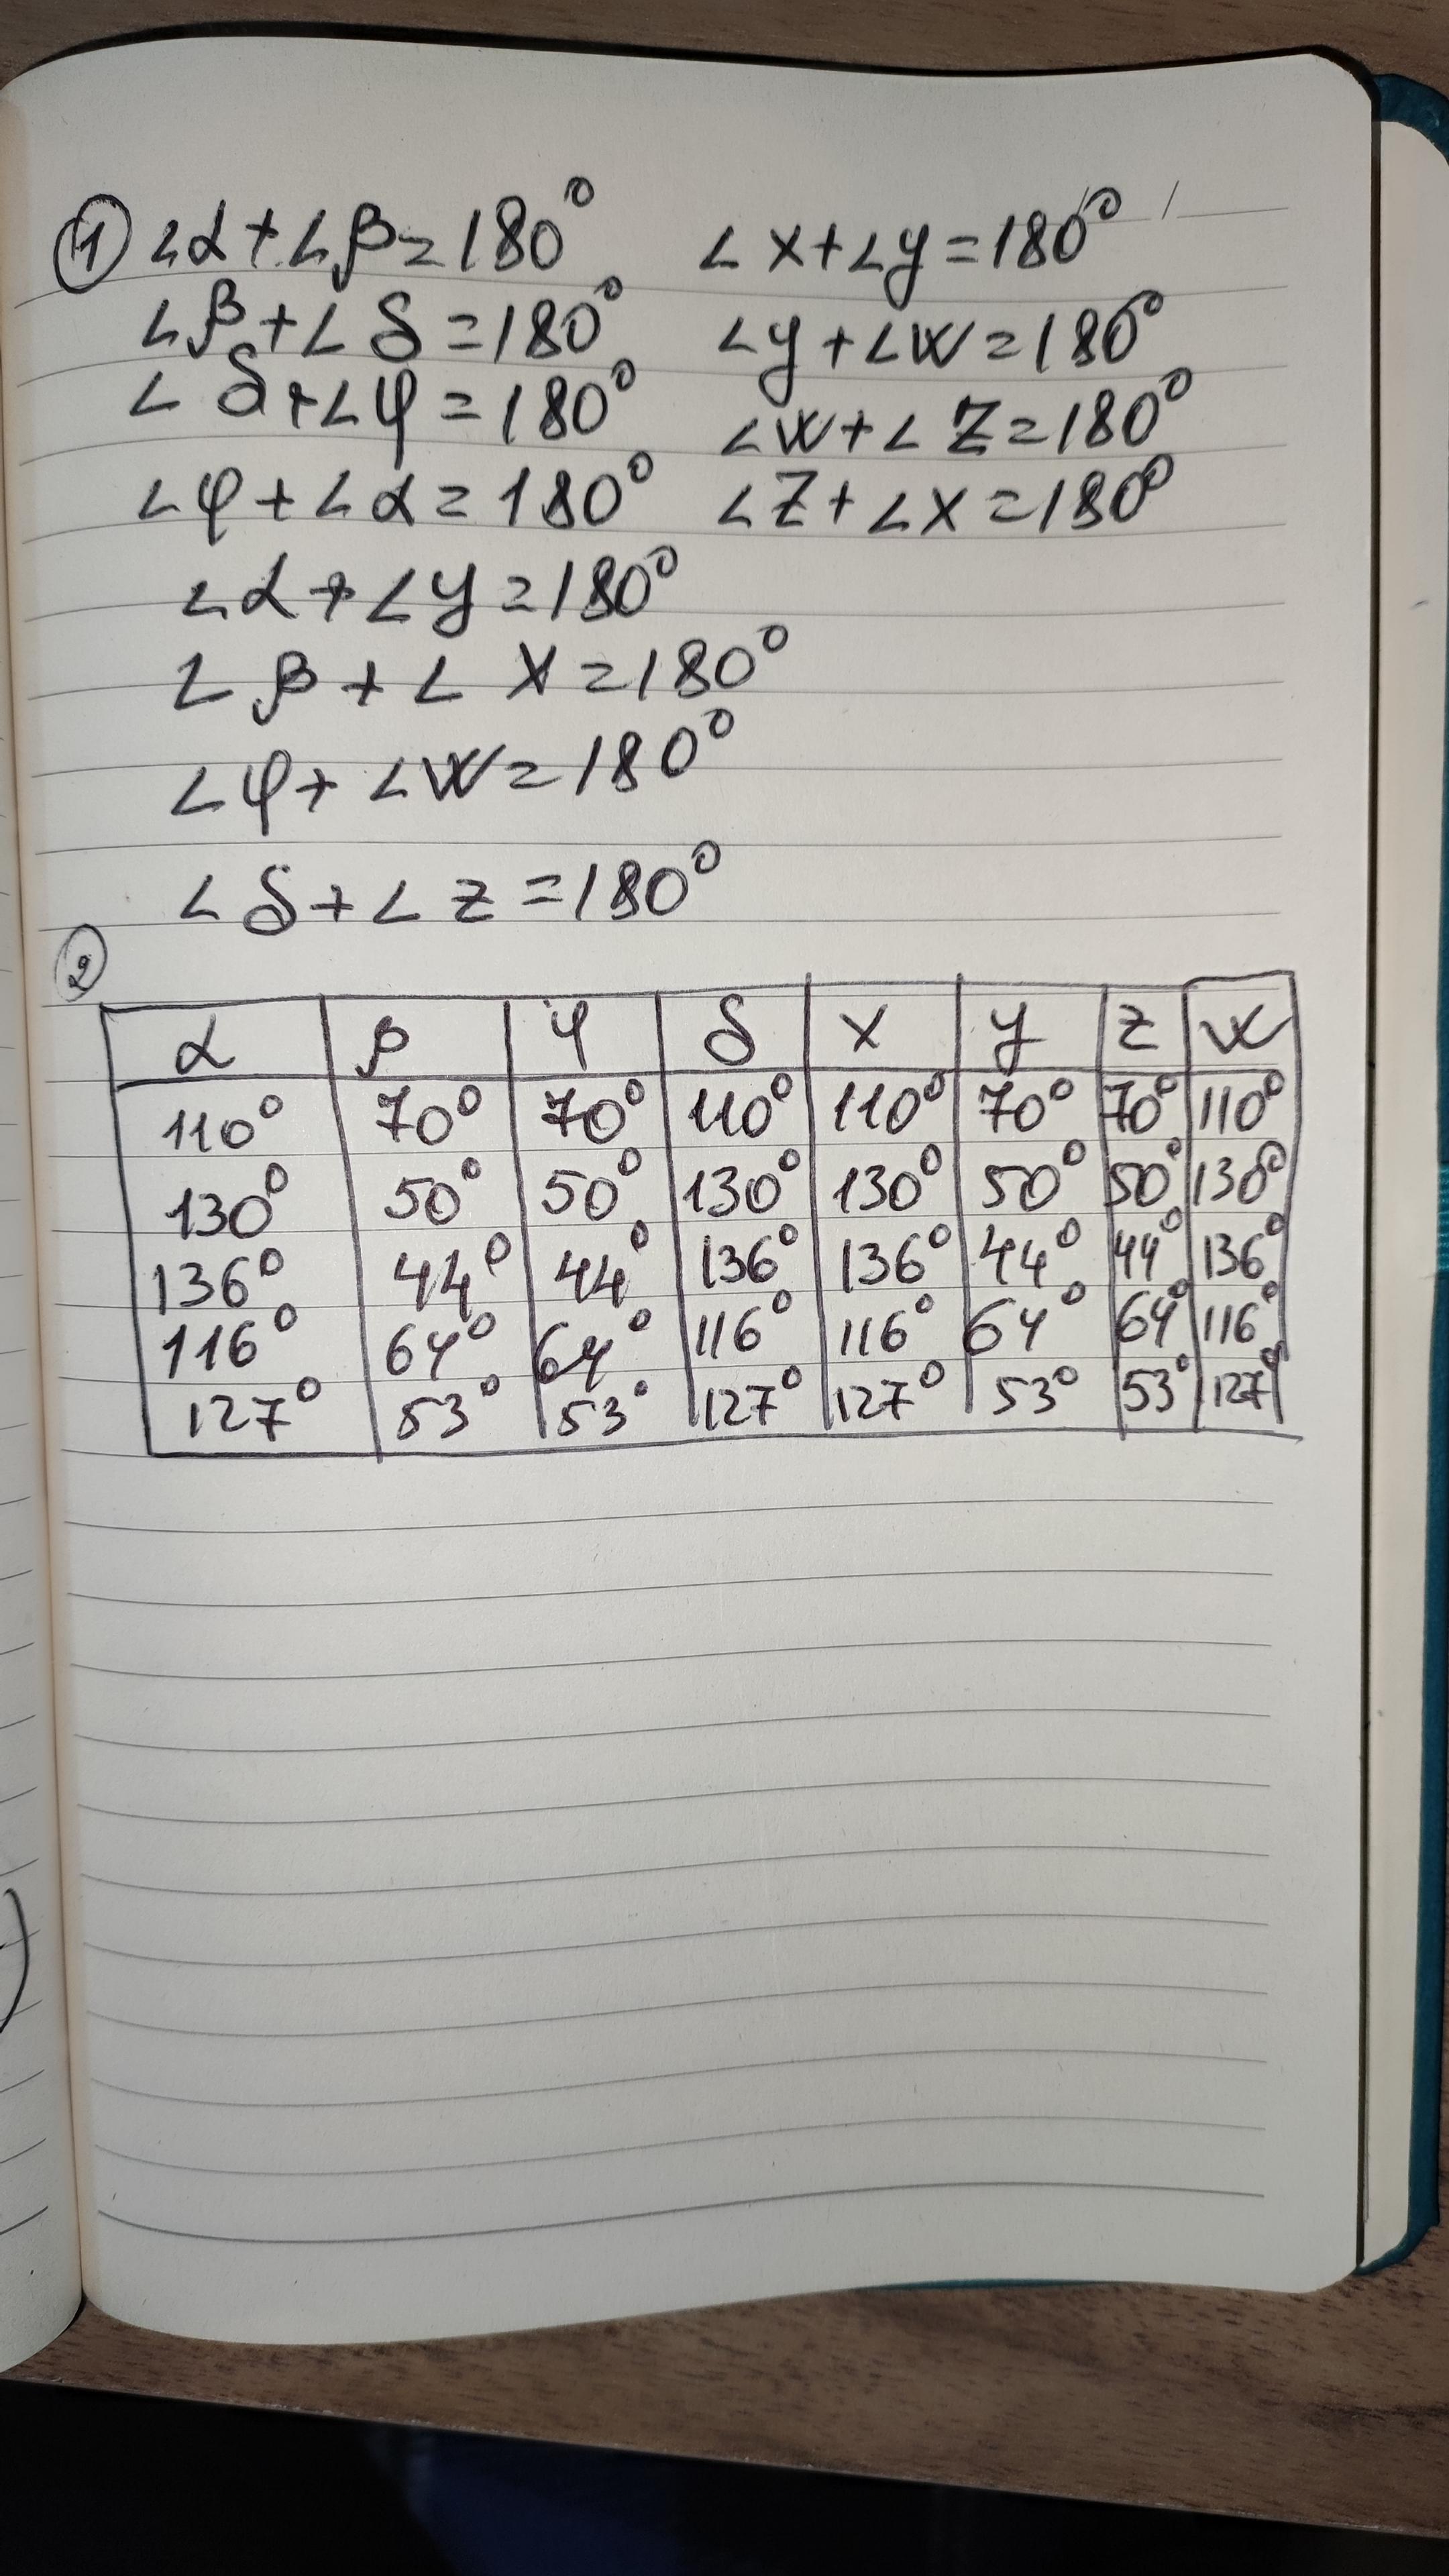 ① ∠α+∠β=180° ∠x+∠y=180°
∠β+∠δ=180° ∠y+∠w=180°
∠δ+∠φ=180° ∠w+∠z=180°
∠φ+∠α=180° ∠z+∠x=180°
∠α+∠y=180°
∠β+∠x=180°
∠φ+∠w=180°
∠δ+∠z=180°
②
α β φ δ x y z w
110° 70° 70° 110° 110° 70° 70° 110°
130° 50° 50° 130° 130° 50° 50° 130°
136° 44° 44° 136° 136° 44° 44° 136°
116° 64° 64° 116° 116° 64° 64° 116°
127° 53° 53° 127° 127° 53° 53° 127°